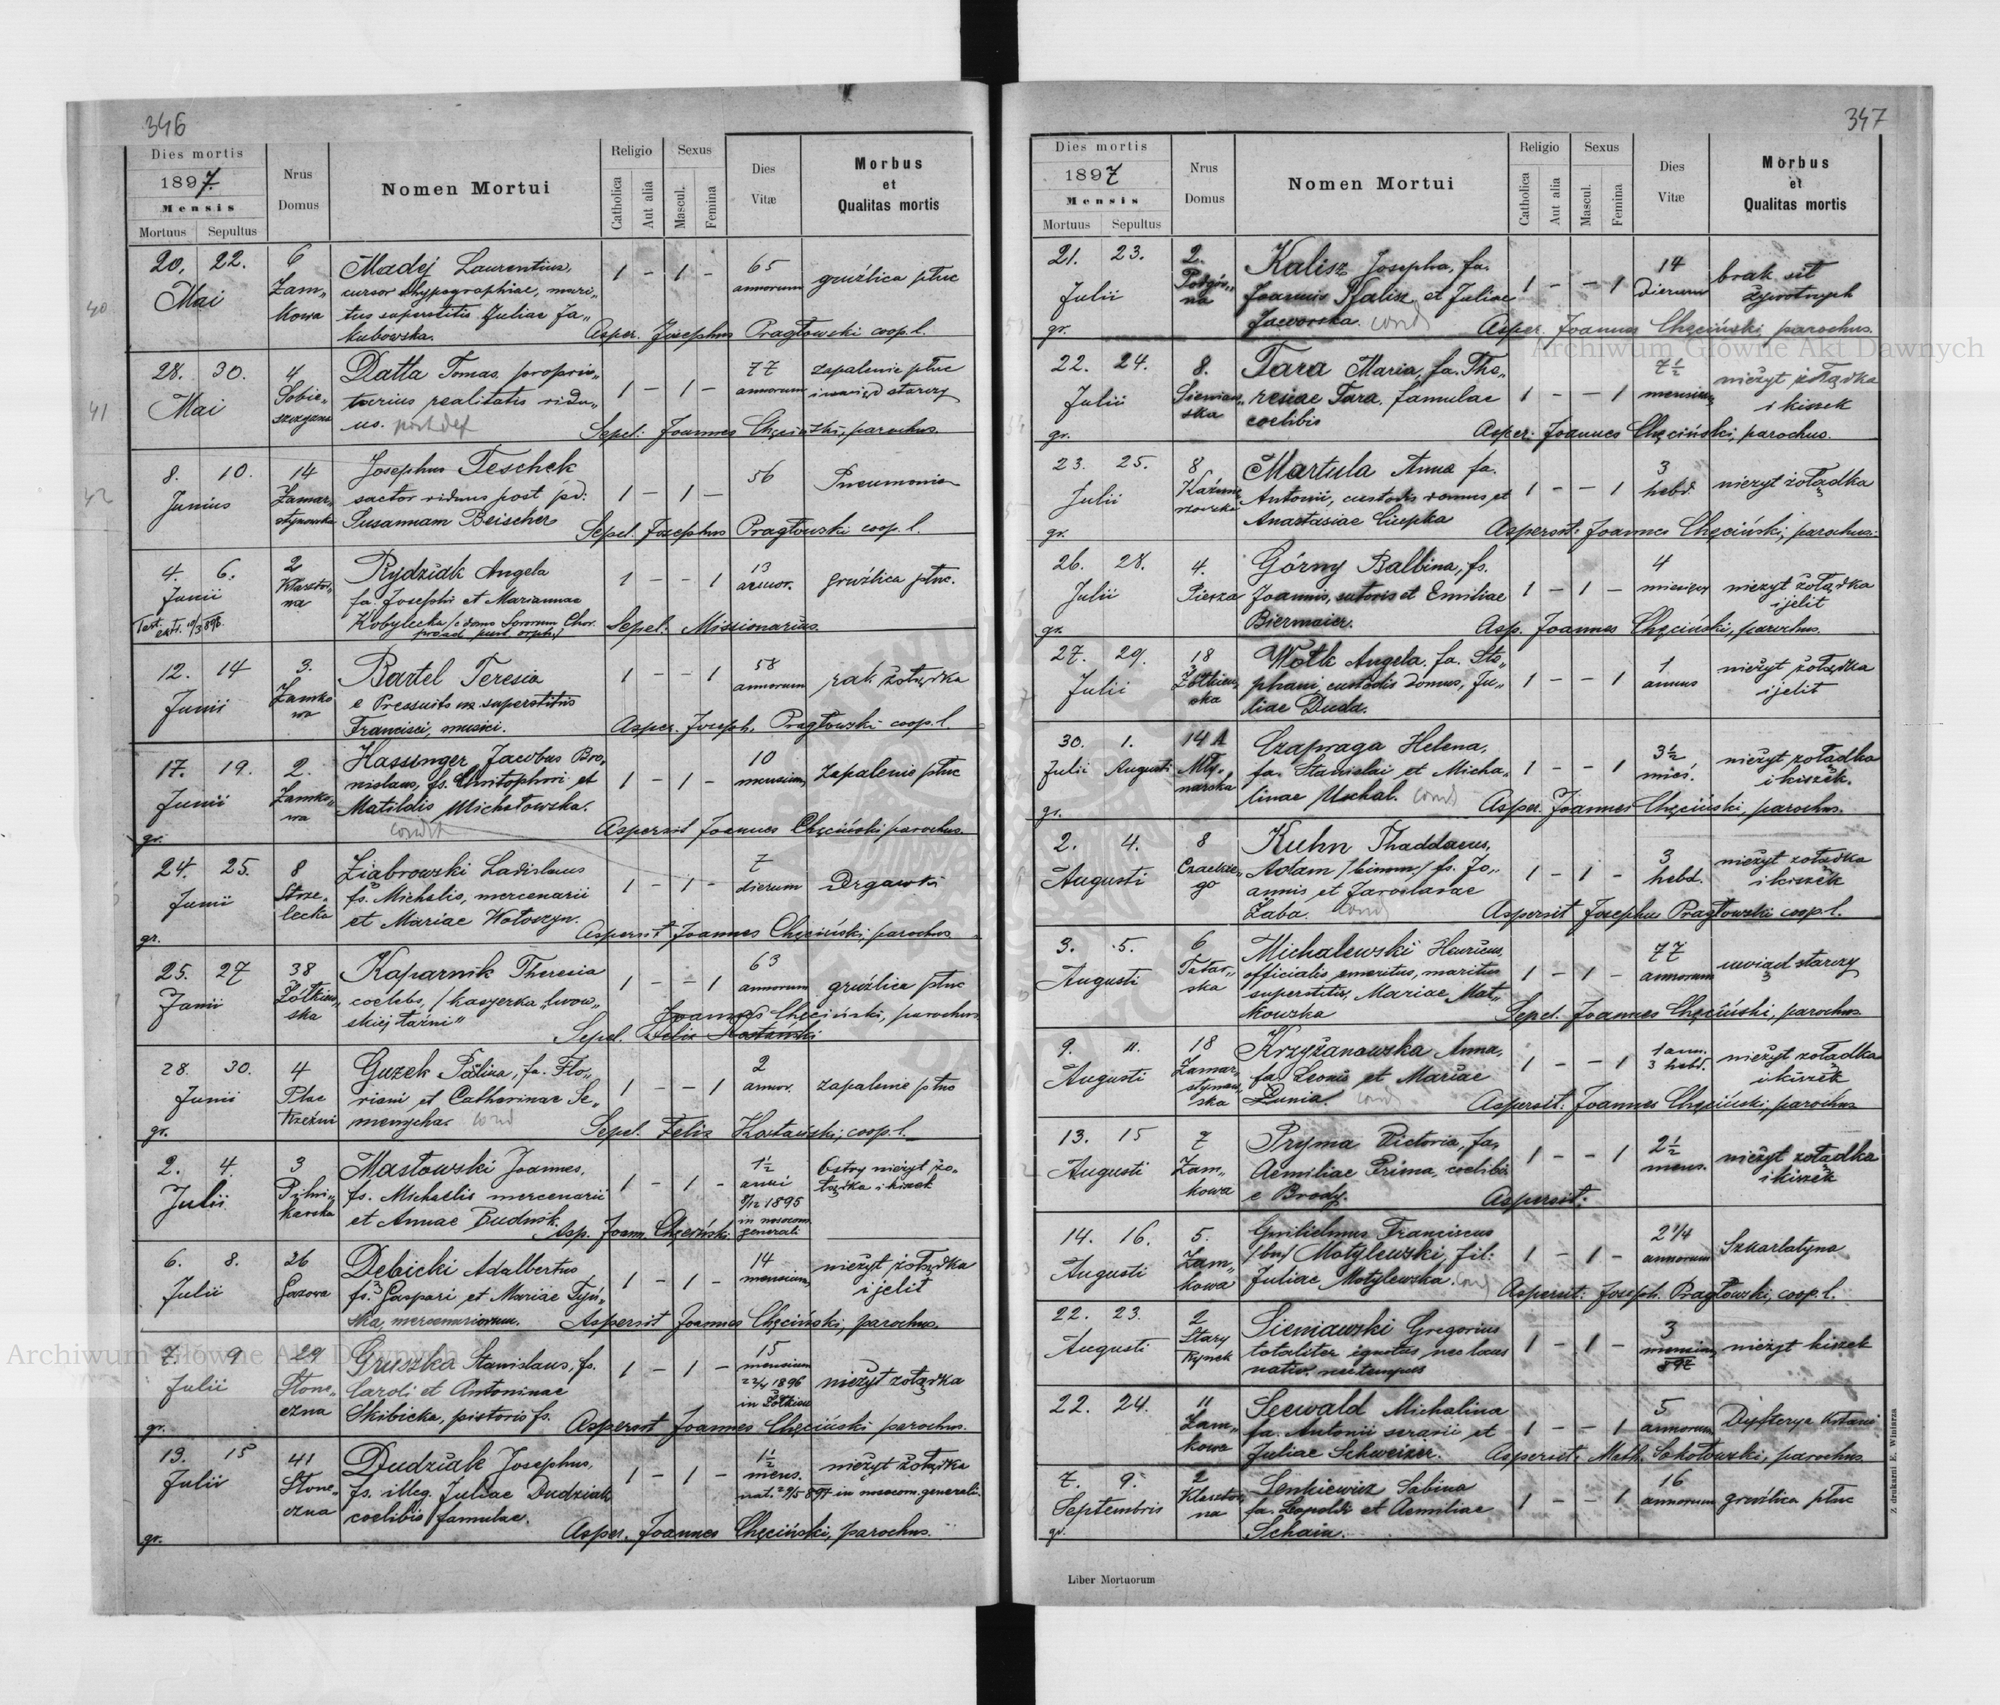 346
Dies mortis
1897.
Mensis
Mortuus Sepultus
Nrus Domus
Nomen Mortui
Religio
Catholica
Aut alia
Sexus
Mascul.
Femina
Dies Vitæ
Morbus et Qualitas mortis
20. 22. 6 Madej Laurentius, 1 – 1 – 65 gruźlica płuc
Mai Zam„ cursor typographiae, mari„ annorum
kowa tus superstitis Juliae Ja„
kubowska. Asper. Josephus Pragłowski coop. l.
28. 30. 4 Datta Tomas proprie„ 1 – 1 – 77 zapalenie płuc
Mai Sobie„ tarius realitatis vidu„ annorum i uwiąd starczy
szczyzna us. post def Sepel: Joannes Chęciński, parochus.
8. 10. 14 Josephus Teschek 1 – 1 – 56 Pneumonia
Junius Zamar„ sartor viduus post pd:
stynowska Susannam Beischer Sepel. Josephus Pragłowski coop. l.
4. 6. 2 Rydziak Angela 1 – – 1 13 gruźlica płuc.
Junii Klasztor„ fa. Josephi et Mariannae annor.
na Kobylecka / e domo Sororum Char.
Sepel: Missionarius.
12. 14 3. Bartel Teresia 1 – – 1 58 rak żołądka
Junii Zamko wa e Pressuits ux superstitus annorum
Francisci, musici. Asper. Joseph. Pragłowski coop. l.
17. 19. 2. Hassinger Jacobus Bro„ 1 – 1 – 10 zapalenie płuc
Junii Zamko„ nislaus, fs. Christophori et mensium,
wa Matildis Michałowska.
gr. cond Aspersit Joannes Chęciński parochus.
24. 25. 8 Ziabrowski Ladislaus 1 – 1 – 7 Drgawki
Junii Strze„ fs. Michalis, mercenarii dierum
lecka et Mariae Wołoszyn.
gr. Aspersit Joannes Chęciński, parochus
25. 27 38 Kaparnik Theresia 1 – – 1 63 gruźlica płuc
Junii Żółkiew„ coelebs, / kasyerka „lwow„ annorum
ska skiej łaźni” Joannes Chęciński, parochus
Sepel. Felix Kostański
28. 30. 4 Guzek Paulina, fa. Flo„ 1 – – 1 2 zapalenie płuc
Junii Plac riani et Catharinae Se„ annor.
Rzeźni menycha. cond
gr. Sepel. Felix Kostański, coop. l.
2. 4. 3 Masłowski Joannes, 1 – 1 – 1½ Ostry nieżyt żo„
Julii fs. Michaelis mercenarii anni łądka i kiszek
karska et Annae Budnik. 8/12 1895
Asp. Joann. Chęciński in nosocom. generali
6. 8. 26 Dębicki Adalbertus 1 – 1 – 14 nieżyt żołądka
Julii Gazowa fs. Gaspari et Mariae Tyń„ mensium, i jelit
ska, mercenariorum. Aspersit Joannes Chęciński, parochus.
7. 9 29 Gruszka Stanislaus, fs. 1 – 1 – 15 nieżyt żołądka
Julii Słone„ Caroli et Antoninae mensium
czna Skibicka, pistoris fs. 22/4 1896
in Żółkiew
gr. Aspersit Joannes Chęciński parochus.
13. 15 41 Dudziak Josephus, 1 – 1 – 1½ nieżyt żołądka
Julii Słone„ fs. illeg. Juliae Dudziak mens.
czna coelibis / famulae. nat. 29/5 897 in nosocom. generali.
gr. Asper. Joannes Chęciński, parochus.
40
41
42
347
Dies mortis
1897
Mensis
Mortuus Sepultus
Nrus Domus
Nomen Mortui
Religio
Catholica
Aut alia
Sexus
Mascul.
Femina
Dies Vitæ
Morbus et Qualitas mortis
21. 23. 2. Kalisz Josepha, fa. 1 – – 1 14 brak sił
Julii Podgór„ Joannis Kalisz et Juliae dierum żywotnych
na Jaworska. cond
gr. Asper. Joannes Chęciński parochus.
22. 24. 8. Tara Maria, fa. The„ 1 – – 1 7½ nieżyt żołądka
Julii Sieniaw„ resiae Tara, famulae mensium i kiszek
ska coelibis
gr. Asper: Joannes Chęciński, parochus.
23. 25. 8 Martula Anna fa. 1 – – 1 3 nieżyt żołądka
Julii Kaźmie Antonii, custodis domus, et hebd.
rzowska Anastasiae Ciupka
gr. Aspersit: Joannes Chęciński, parochus.
26. 28. 4. Górny Balbina, fs. 1 – 1 – 4 nieżyt żołądka
Julii Piesza Joannis, sutoris et Emiliae miesięcy i jelit
Biermaier.
gr. Asp. Joannes Chęciński, parochus.
27. 29. 18 Wołk Angela, fa. Ste„ 1 – – 1 1 nieżyt żołądka
Julii Żółkiew„ phani, custodis domus, Ju„ annus i jelit
ska liae Duda.
30. 1. 14 A Czapraga Helena, 1 – – 1 3½ nieżyt żołądka
Julii Augusti Mły„ fa. Stanislai et Micha„ mies. i kiszek.
narska linae Uschal. cond
gr. Asper. Joannes Chęciński, parochus.
2. 4. 8 Kuhn Thaddaeus, 1 – 1 – 3 nieżyt żołądka
Augusti Czackie„ Adam / binom / fs. Jo„ hebd. i kiszek
go annis et Jaroslavae
Żaba. cond Aspersit Josephus Pragłowski coop. l.
3. 5. 6 Michalewski Henricus, 1 – 1 – 77 uwiąd starczy
Augusti Tatar„ officialis emeritus, maritus annorum
ska superstitis, Mariae Mat„
kowska Sepel. Joannes Chęciński, parochus.
9. 11. 18 Krzyżanowska Anna, 1 – – 1 1 ann. nieżyt żołądka
Augusti Zamar„ fa. Leonis et Mariae 3 hebd. i kiszek
stynow„ ska Łunia. cond
Aspersit: Joannes Chęciński, parochus
13. 15 7 Pryma Victoria, fa. 1 – – 1 2½ nieżyt żołądka
Augusti Zam„ Aemiliae Prima, coelibis mens. i kiszek
kowa e Brody. Aspersit:
14. 16. 5. Guilielmus Franciscus 1 – 1 – 2 1/4 Szkarlatyna
Augusti Zam„ / bin / Motylewski, fil: annorum
kowa Juliae Motylewska. cond
Aspersit: Joseph. Pragłowski, coop. l.
22. 23. 2 Sieniawski Gregorius 1 – 1 – 3 nieżyt kiszek
Augusti Stary totaliter ignotus, nec locus mensium
Rynek nativ. nec tempus 897
22. 24. 11 Seewald Michalina 1 – – 1 5 Dyfterya krtani
Zam„ fa. Antonii serarii et annorum
kowa Juliae Schweizer. Aspersit: Math. Sokołowski, parochus
7. 9. 2 Senkiewicz Sabina 1 – – 1 16 gruźlica płuc
Septembris Klasztor„ fa. Leopoldi et Aemiliae annorum
gr. na Schain.
Liber Mortuorum
Z drukarni E. Winiarza
Archiwum Główne Akt Dawnych
Archiwum Główne Akt Dawnych